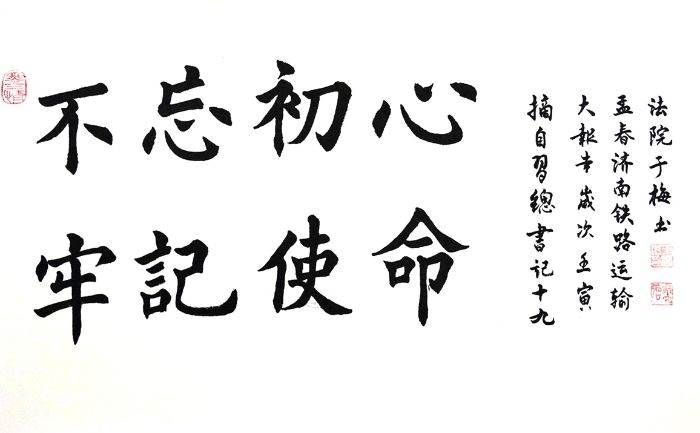 不忘初心
牢記使命
摘自習總書记十九
大報告歲次壬寅
孟春济南铁路运输
法院于梅书